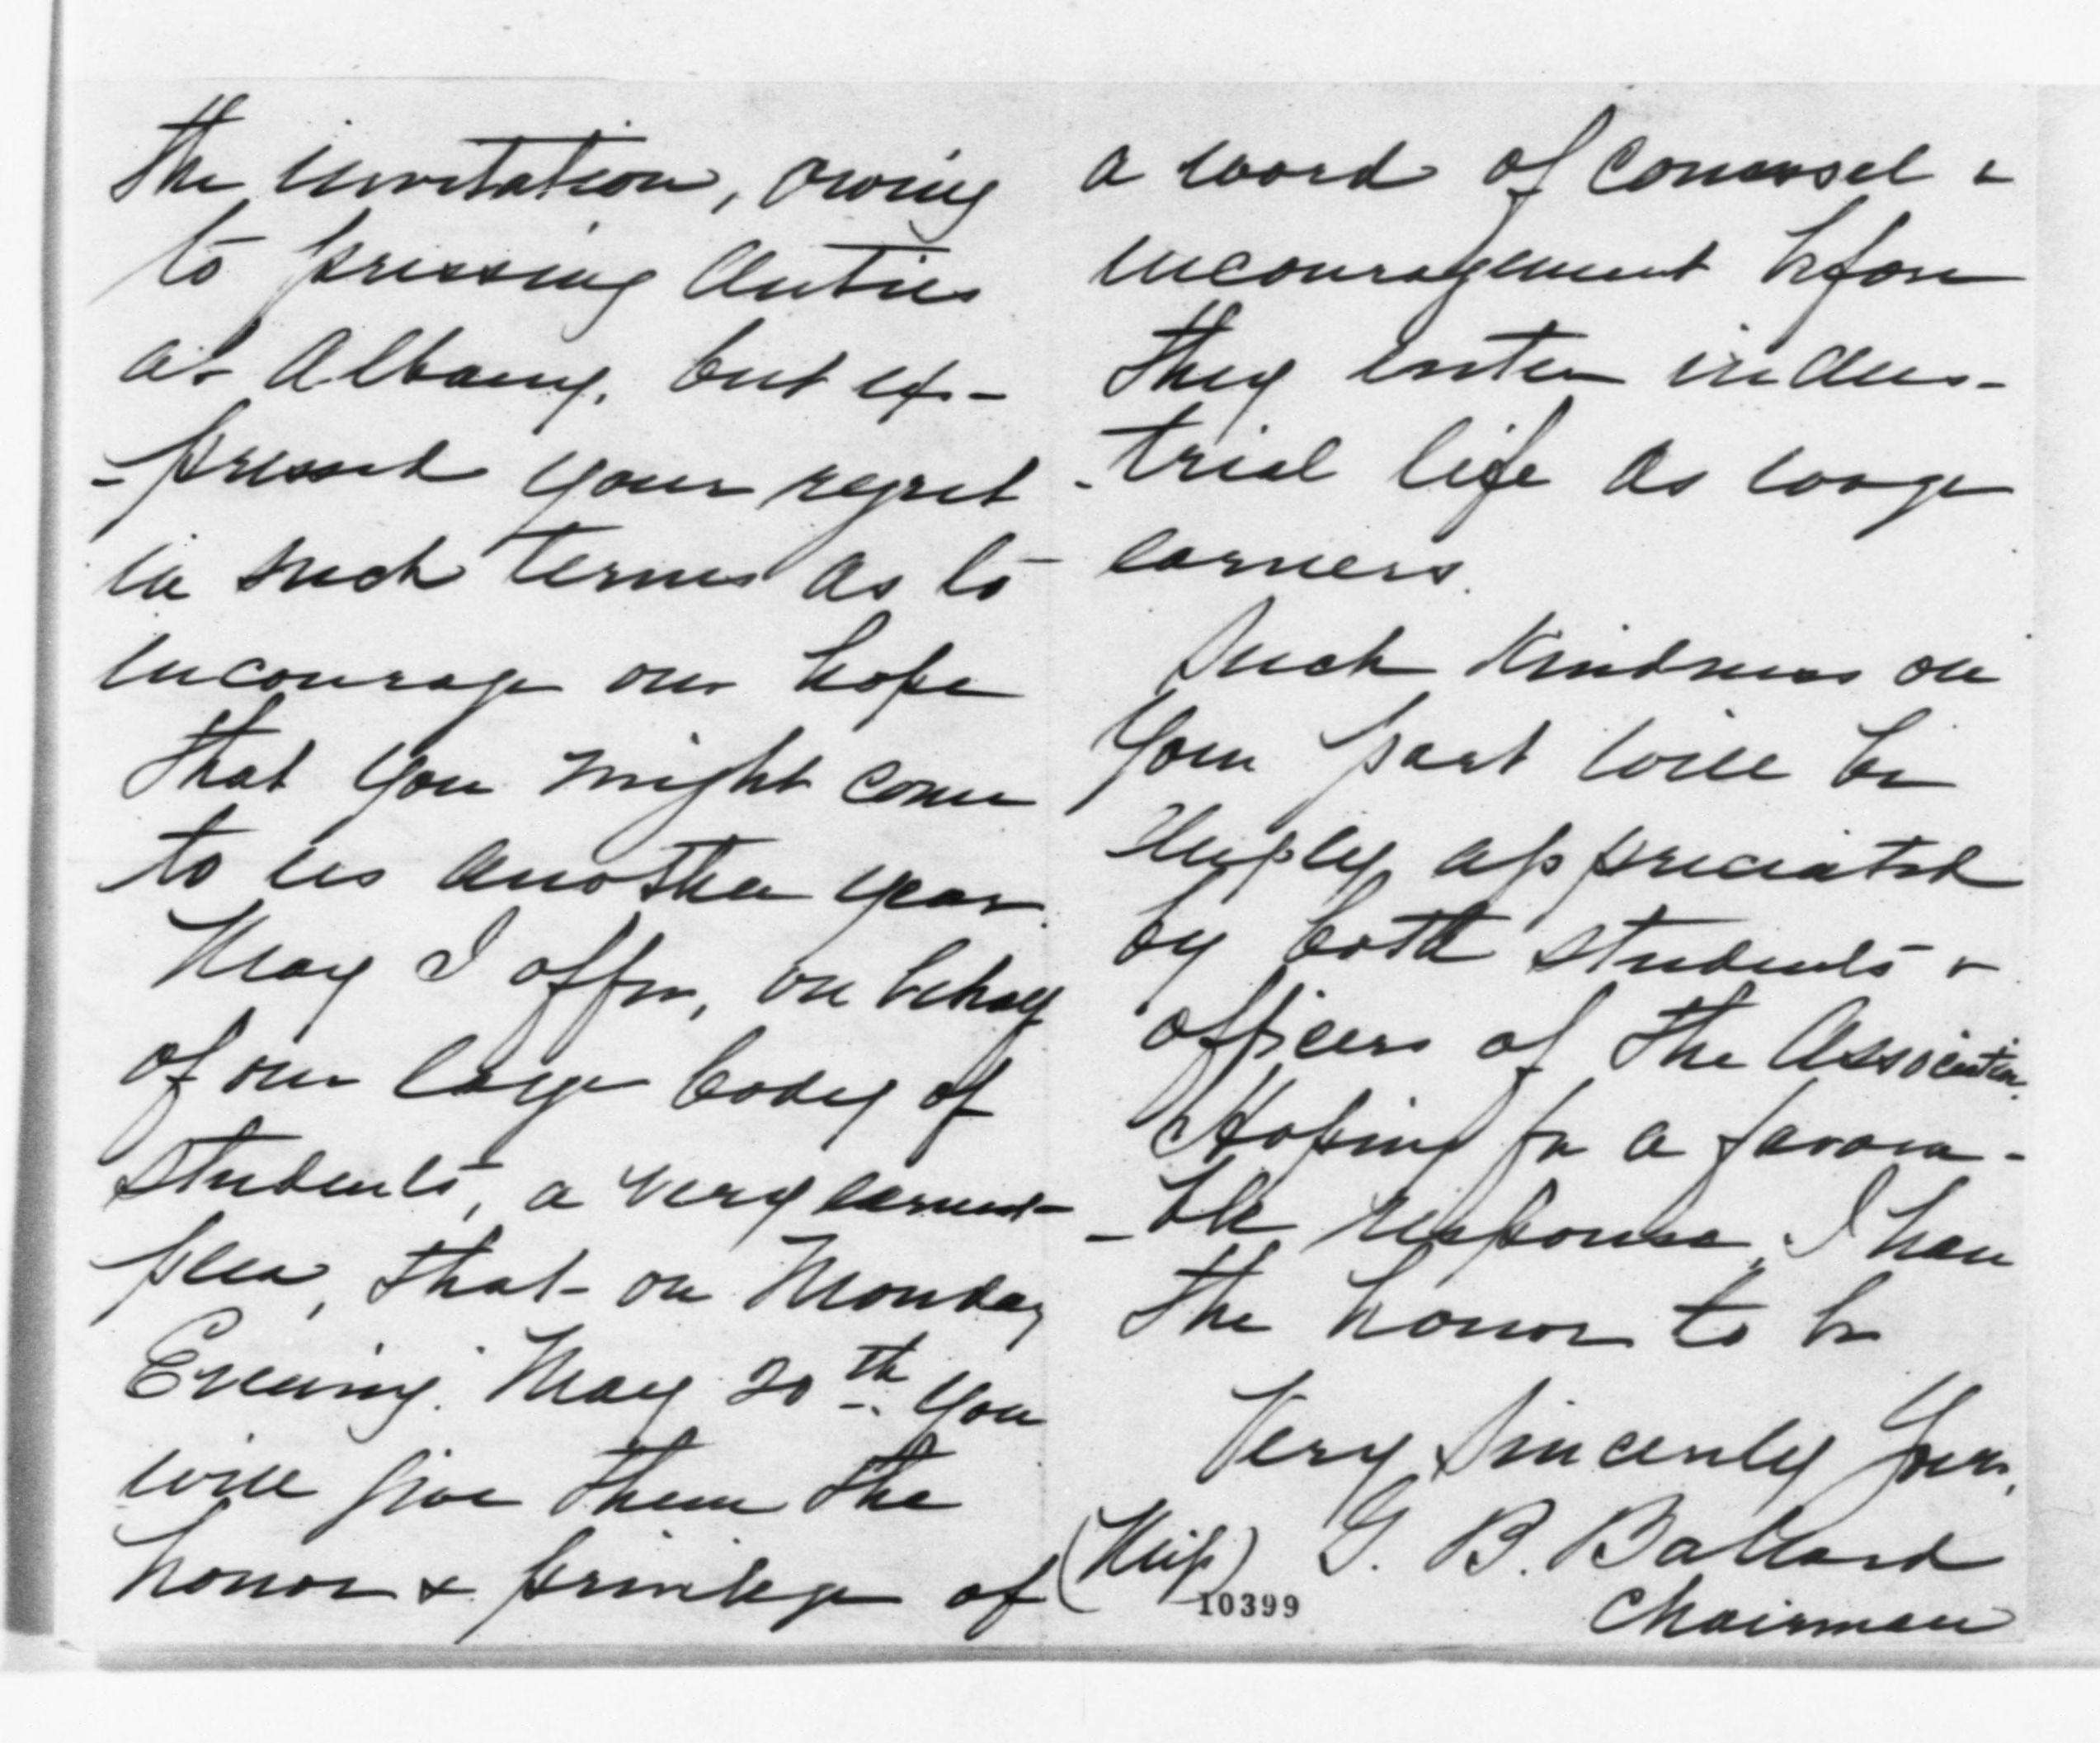 the invitation, owing
to pressing duties
at Albany, but ex-
-pressed your regret
in such terms as to
encourage our hope
that you might come
to us another year.
May I offer, on behalf
of our large body of
students, a very earnest
plea, that on Monday
Evening. May 20th. you
will give them the
honor & privilege of
a word of counsel &
encouragement before
they enter indus-
-trial life as wage
earners.
Such kindness on
your part will be
deeply appreciated
by both students &
officers of the Association.
Hoping for a favora-
-ble response, I have
the honor to be
Very Sincerely Yours,
(Miss) G. B. Ballard
Chairman
10399